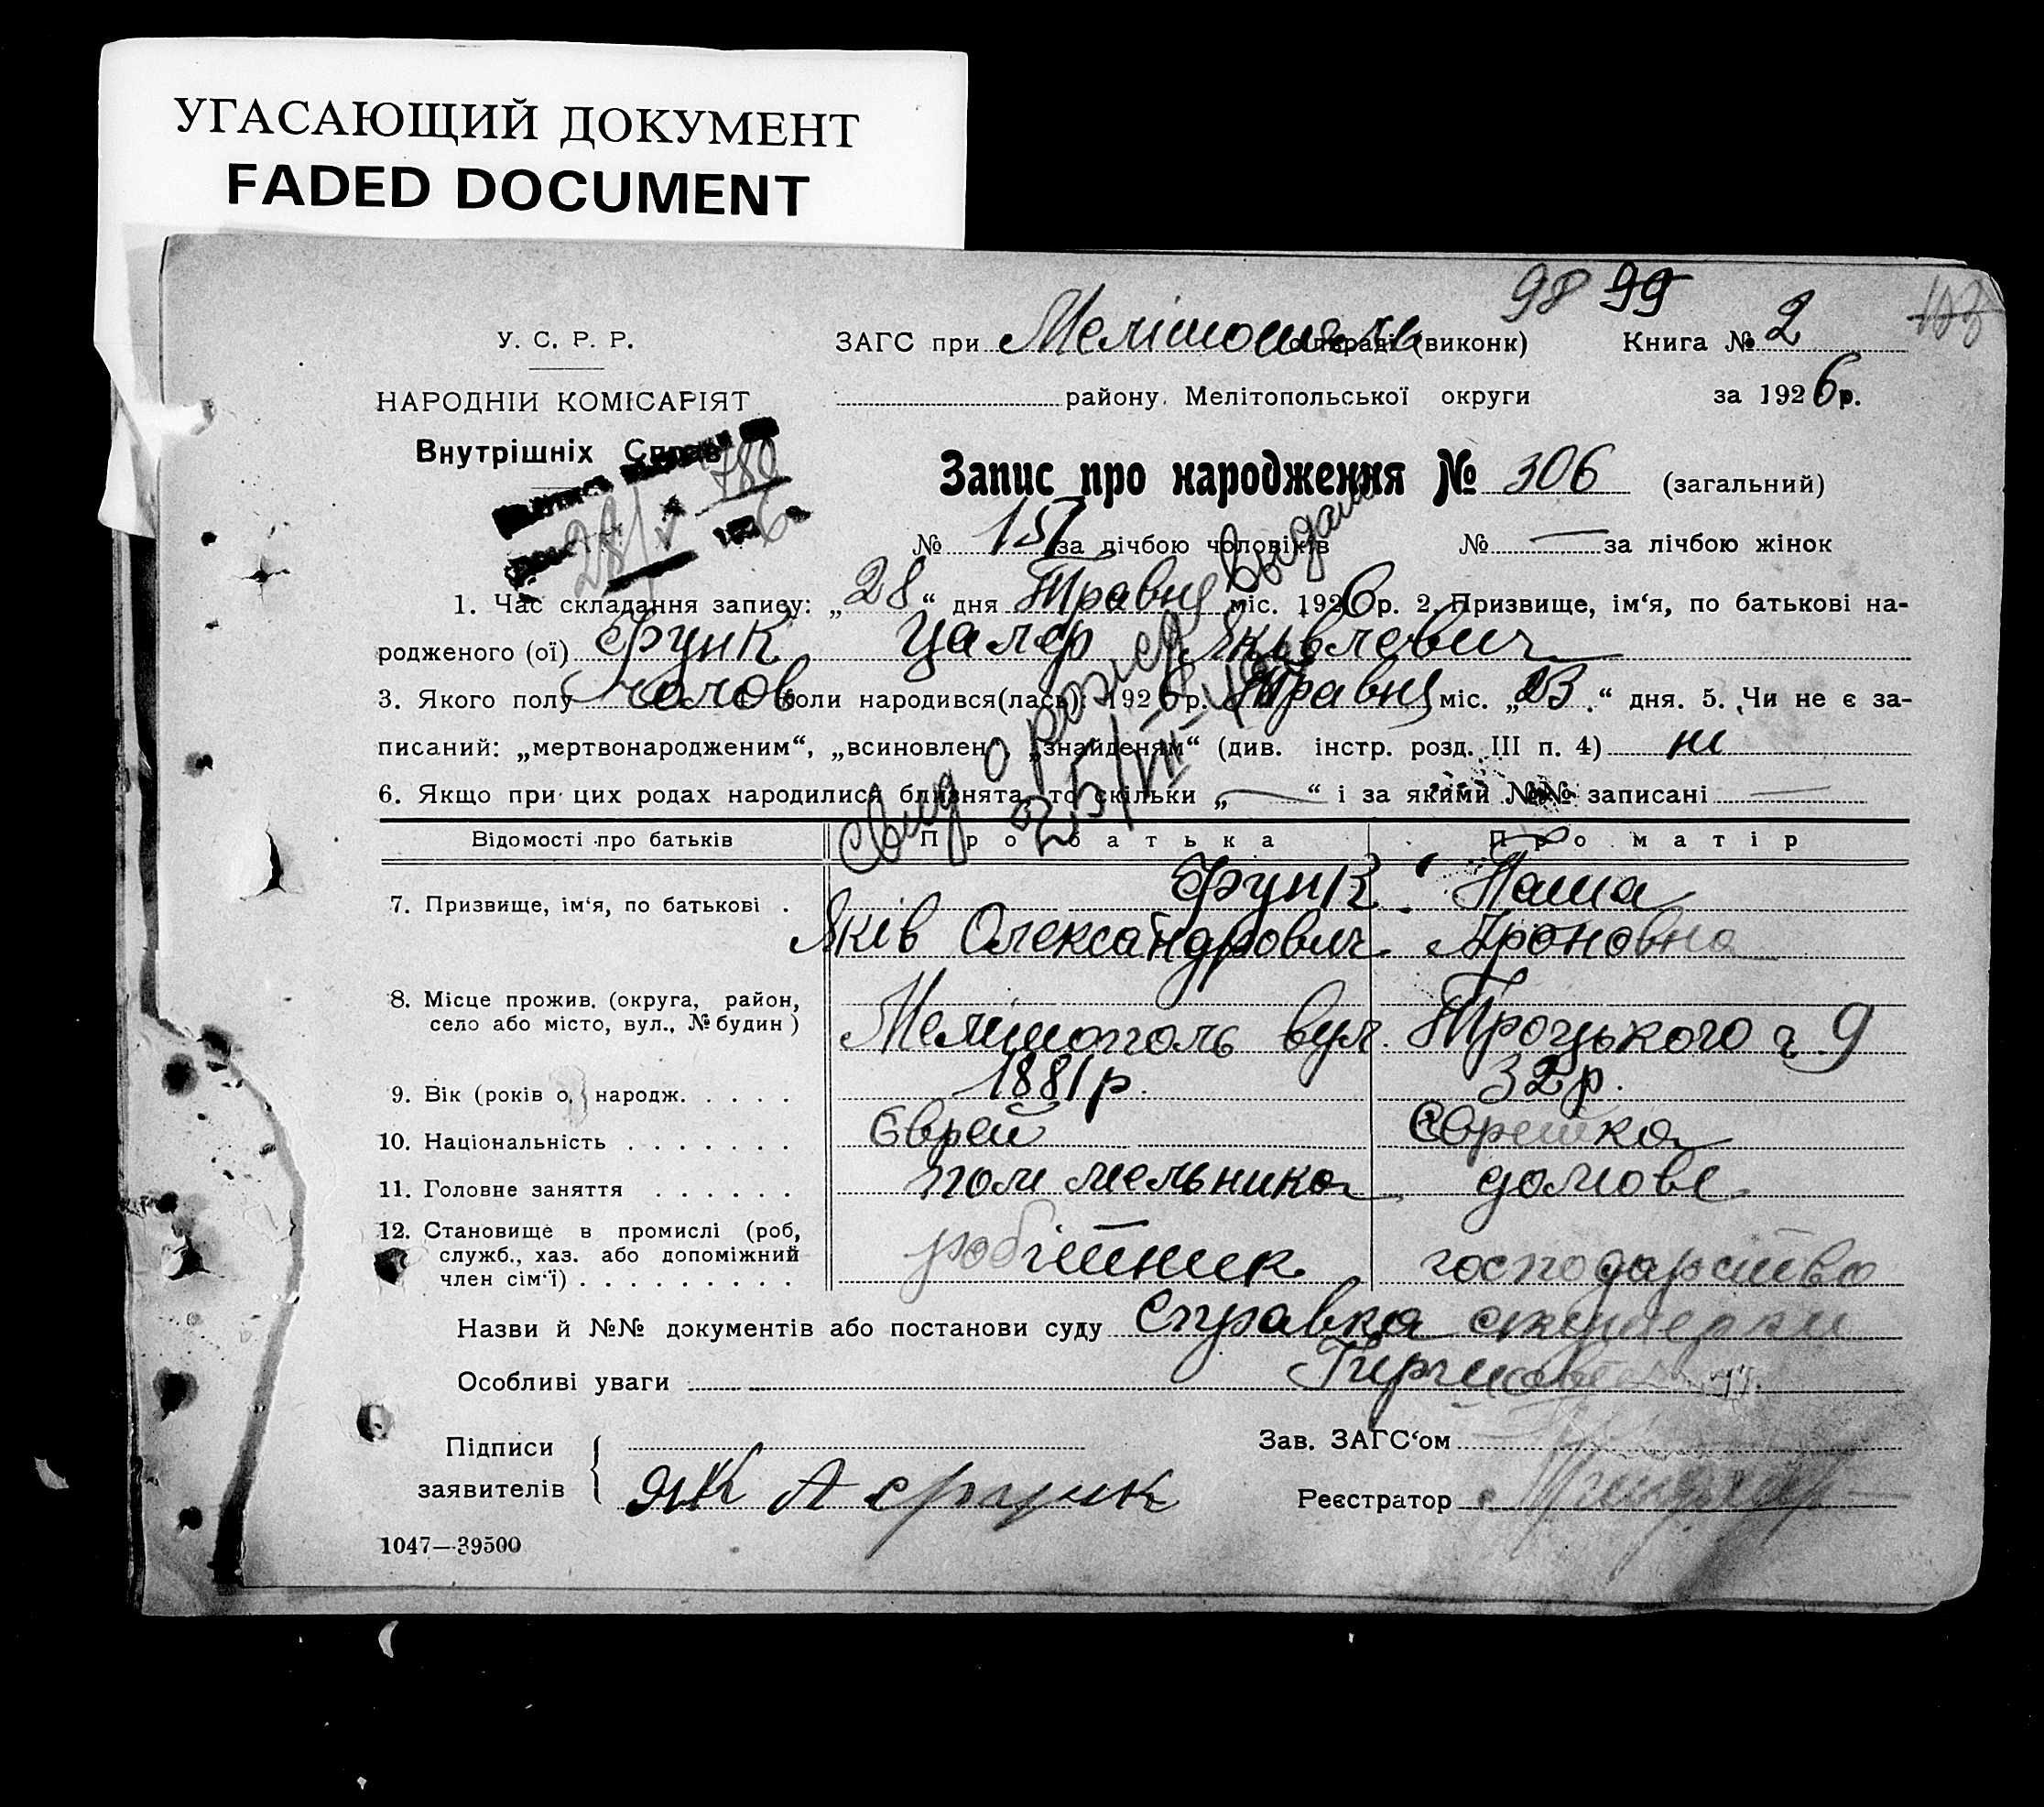 УГАСАЮЩИЙ ДОКУМЕНТ
FADED DOCUMENT
98 99
У. С. Р. Р.
ЗАГС при Мелітополь (виконк)
Книга № 2
НАРОДНІЙ КОМІСАРІЯТ
району. Мелітопольської округи
за 1926 р.
Внутрішніх Справ
Запис про народження № 306 (загальний)
№ 157 за лічбою чоловіків
№ — за лічбою жінок
1. Час складання запису: „28“ дня Травня міс. 1926 р. 2. Призвище, ім‘я, по батькові на-
родженого (ої) Функ Цалер Яківлевич
3. Якого полу чолов 4. Коли народився(лась): 1926 р. Травня міс. „23.“ дня. 5. Чи не є за-
писаний: „мертвонародженим“, „всиновлен „знайденям“ (див. інстр. розд. III п. 4) ні
6. Якщо при цих родах народилися близнята, то скільки „—“ і за якими №№ записані —
Свид о рожд Выдано
25/VII
Відомості про батьків
Про батька
Про матір
7. Призвище, ім‘я, по батькові .
Функ
Паша
Яків Олександрович
Ароновна
8. Місце прожив. (округа, район,
село або місто, вул., № будин)
Мелітополь вул. Троцького ч 9
9. Вік (років о. народж. . . . . .
1881 р.
32 р.
10. Національність . . . . . . .
Єврей
Єврейка
11. Головне заняття . . . . . .
пом мельника
домове
12. Становище в промислі (роб,
служб., хаз. або допоміжний
член сім‘ї) . . . . . . . . .
робітник
господарство
Назви й №№ документів або постанови суду Справка акушерки
Особливі уваги
Підписи
заявителів
Як А Функ
Зав. ЗАГС‘ом
Реєстратор
1047—39500